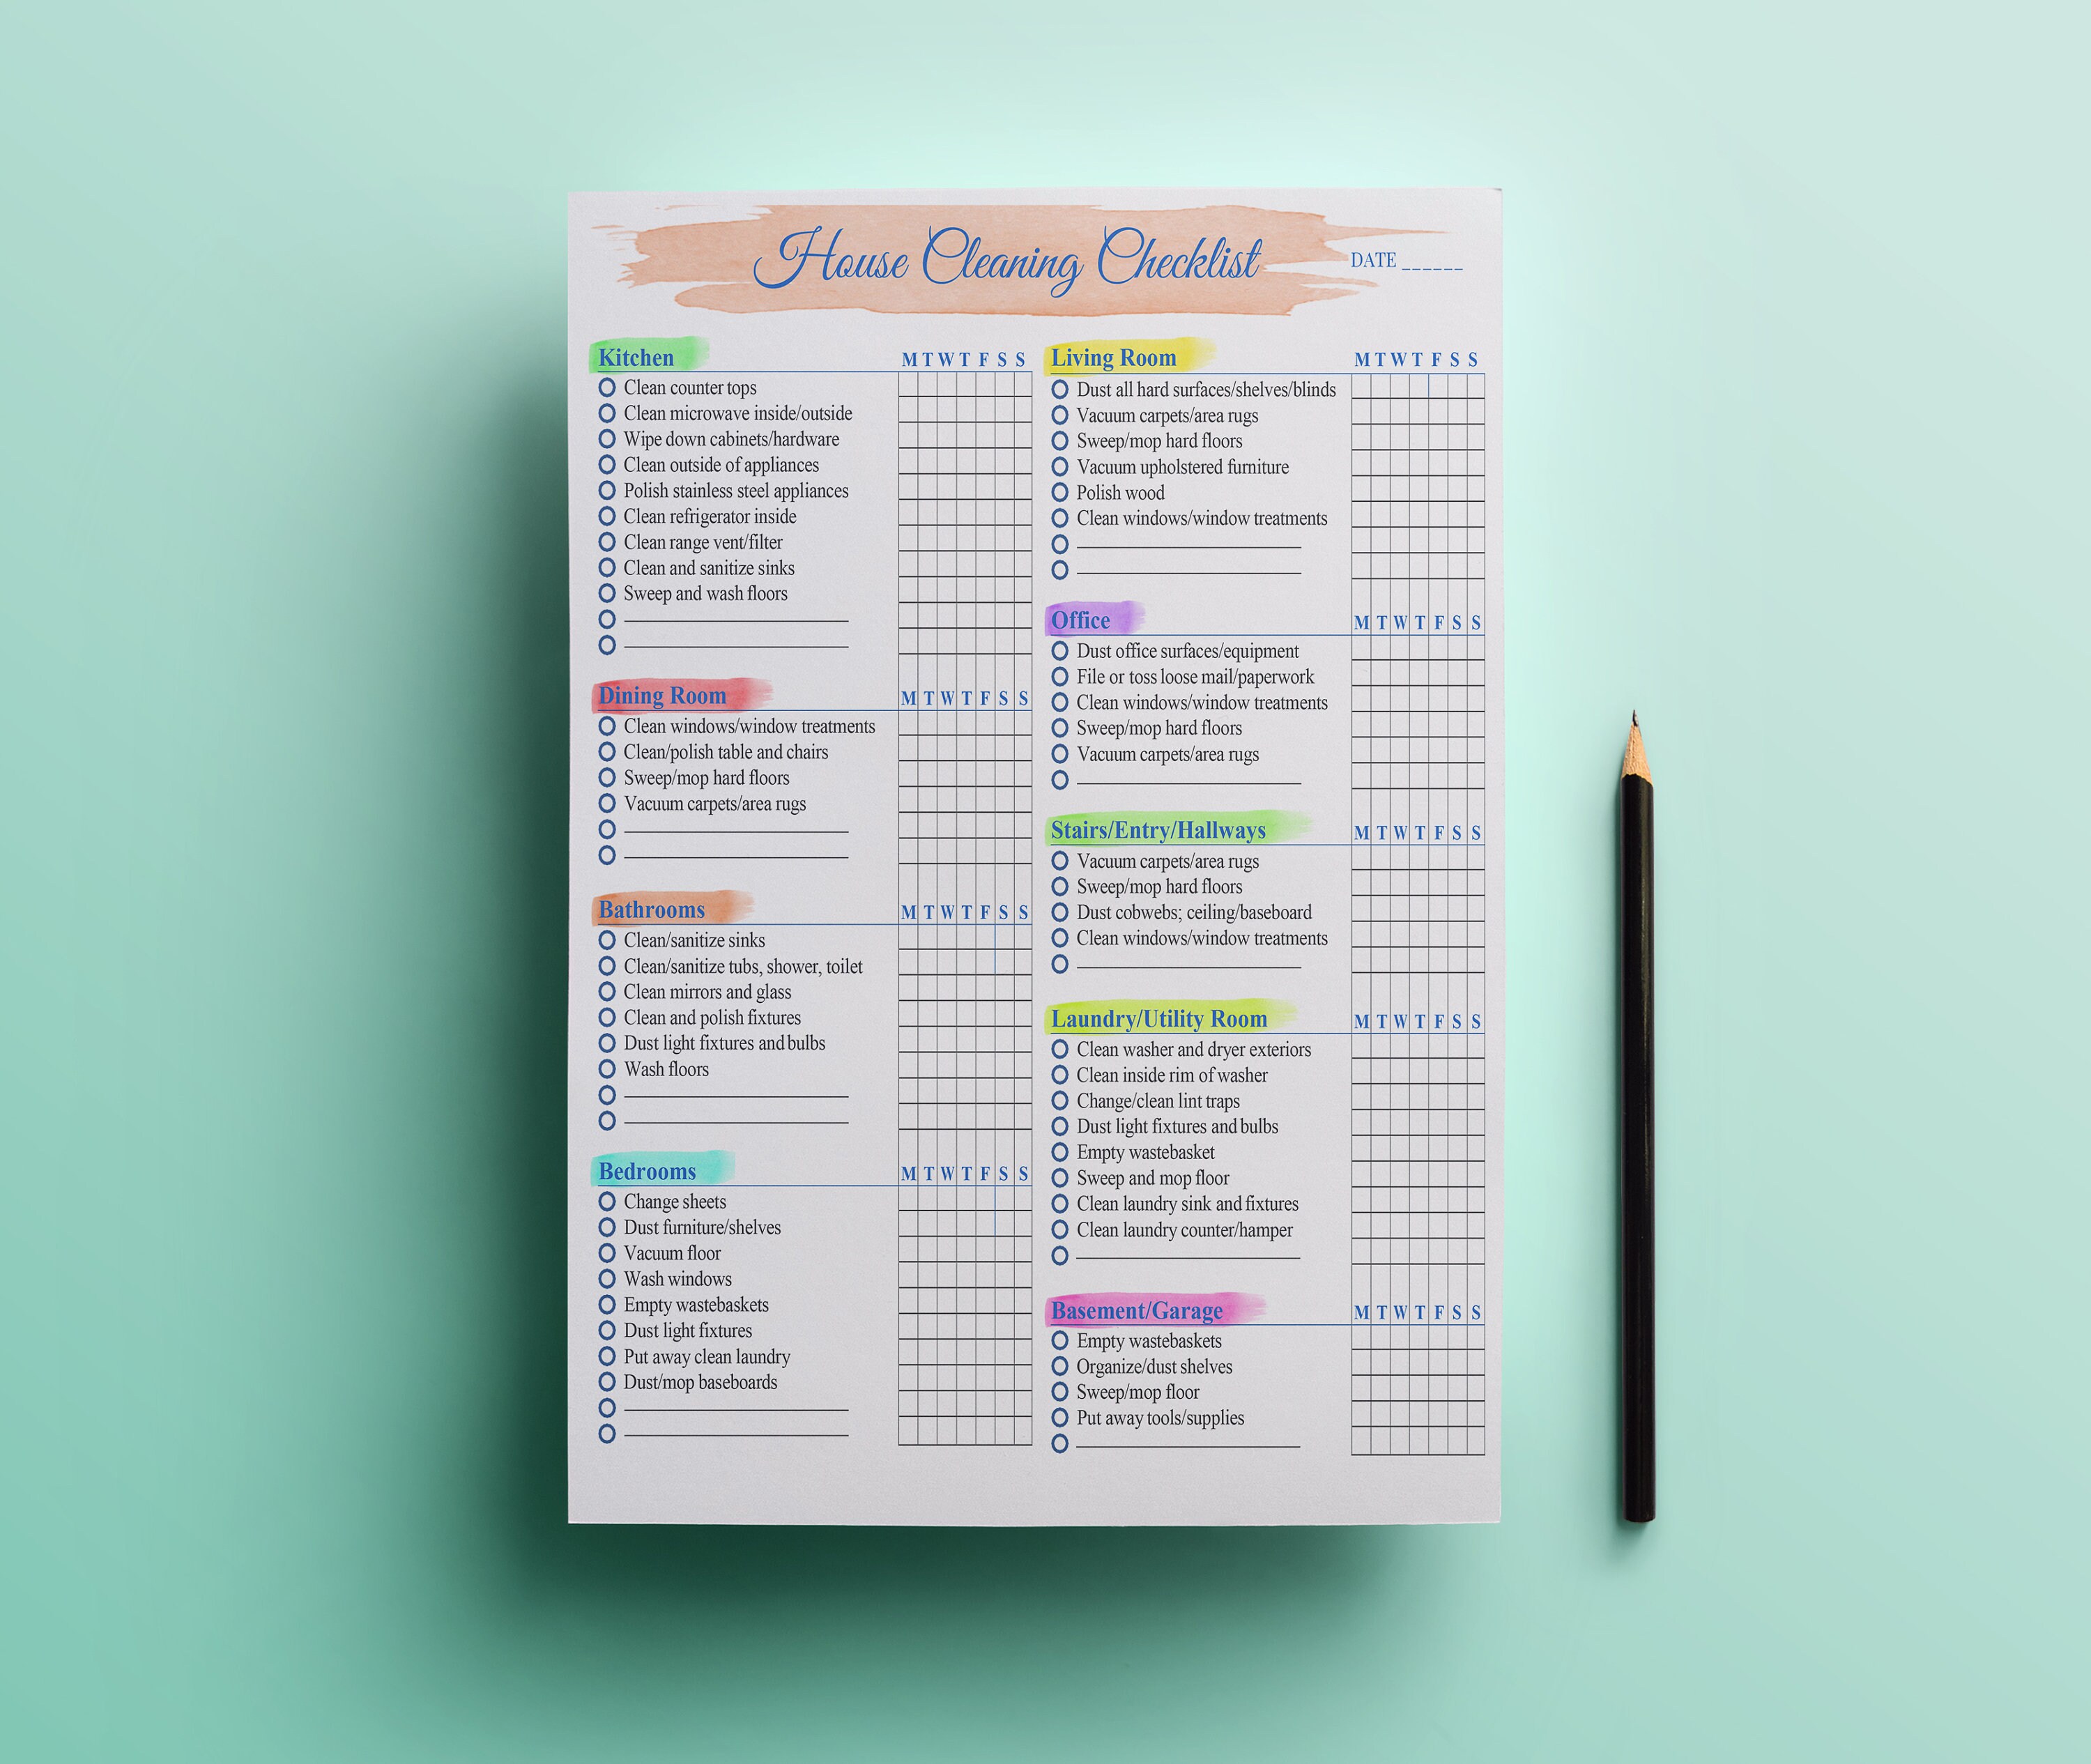 House Cleaning Checklist
DATE ______
Kitchen M T W T F S S
Clean counter tops
Clean microwave inside/outside
Wipe down cabinets/hardware
Clean outside of appliances
Polish stainless steel appliances
Clean refrigerator inside
Clean range vent/filter
Clean and sanitize sinks
Sweep and wash floors
Dining Room M T W T F S S
Clean windows/window treatments
Clean/polish table and chairs
Sweep/mop hard floors
Vacuum carpets/area rugs
Bathrooms M T W T F S S
Clean/sanitize sinks
Clean/sanitize tubs, shower, toilet
Clean mirrors and glass
Clean and polish fixtures
Dust light fixtures and bulbs
Wash floors
Bedrooms M T W T F S S
Change sheets
Dust furniture/shelves
Vacuum floor
Wash windows
Empty wastebaskets
Dust light fixtures
Put away clean laundry
Dust/mop baseboards
Living Room M T W T F S S
Dust all hard surfaces/shelves/blinds
Vacuum carpets/area rugs
Sweep/mop hard floors
Vacuum upholstered furniture
Polish wood
Clean windows/window treatments
Office M T W T F S S
Dust office surfaces/equipment
File or toss loose mail/paperwork
Clean windows/window treatments
Sweep/mop hard floors
Vacuum carpets/area rugs
Stairs/Entry/Hallways M T W T F S S
Vacuum carpets/area rugs
Sweep/mop hard floors
Dust cobwebs; ceiling/baseboard
Clean windows/window treatments
Laundry/Utility Room M T W T F S S
Clean washer and dryer exteriors
Clean inside rim of washer
Change/clean lint traps
Dust light fixtures and bulbs
Empty wastebasket
Sweep and mop floor
Clean laundry sink and fixtures
Clean laundry counter/hamper
Basement/Garage M T W T F S S
Empty wastebaskets
Organize/dust shelves
Sweep/mop floor
Put away tools/supplies